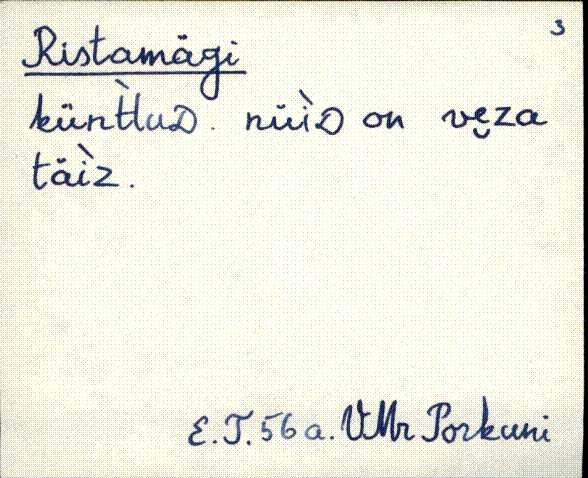 3
Ristamägi
künt̀luD. nüìD on vęza
täìz.
E.T. 56 a. VMr Porkuni